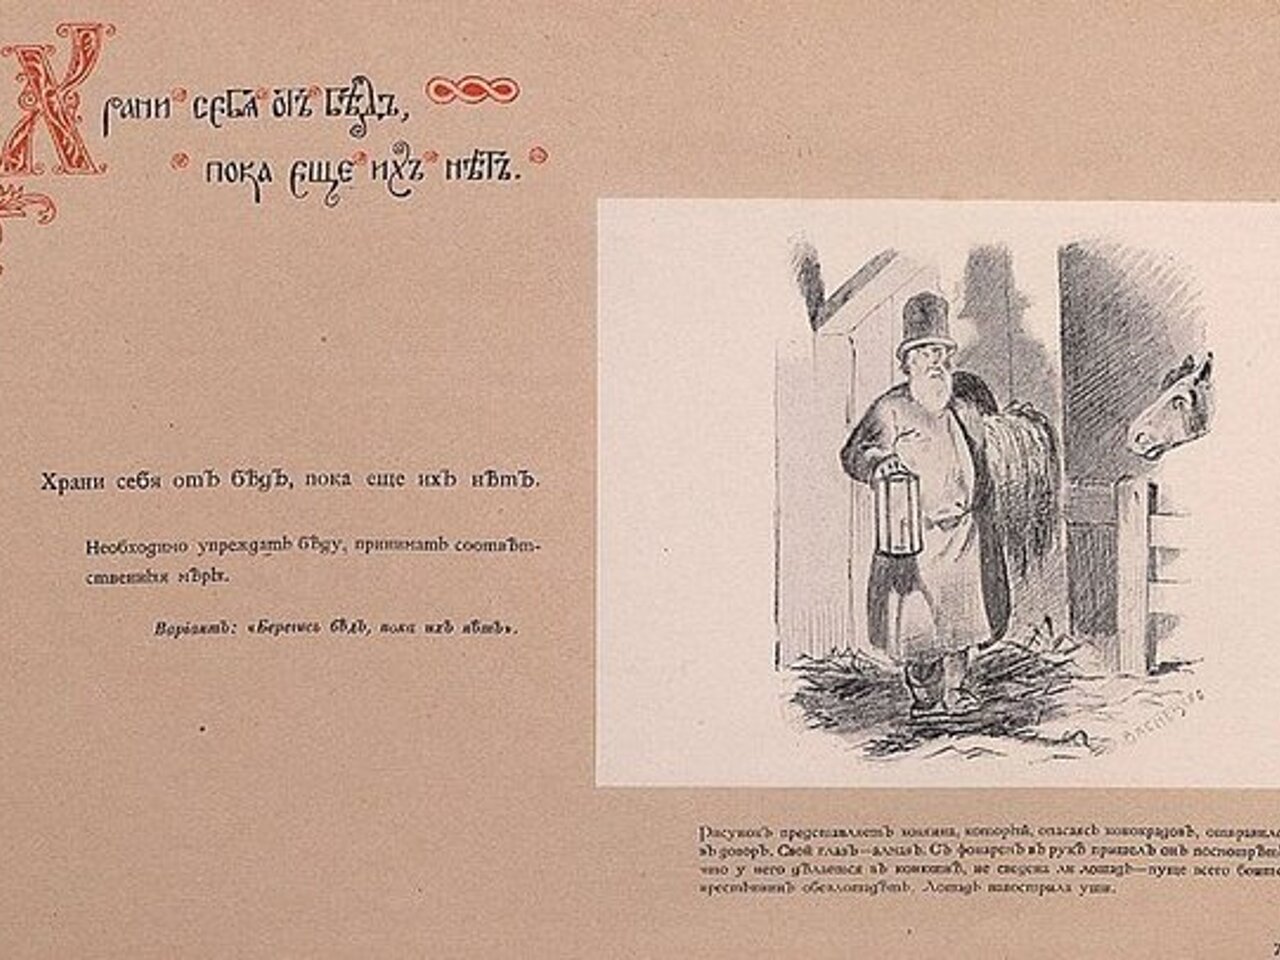 Храни себя отъ бѣдъ,
пока еще ихъ нѣтъ.
Храни себя отъ бѣдъ, пока еще ихъ нѣтъ.
Необходимо упреждать бѣду, принимать соотвѣт-
ственныя мѣры.
Варіантъ: «Берегись бѣдъ, пока ихъ нѣтъ».
Рисунокъ представляетъ хозяина, который, опасаясь конокрадовъ, отправилс
въ дозоръ. Свой глазъ—алмазъ. Съ фонаремъ въ рукѣ пришелъ онъ посмотрѣт
что у него дѣлается въ конюшнѣ, не сведена ли лошадь—пуще всего боитс
крестьянинъ обезлошадѣть. Лошадь навострила уши.